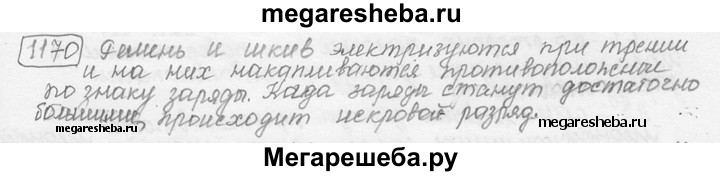 megaresheba.ru
1170 Ремень и шкив электризуются при трении
и на них накапливаются противоположные
по знаку заряды. Когда заряды станут достаточно
большими, происходит искровой разряд.
www.megaresheba.ru www.megaresheba.ru
Мегарешеба.ру